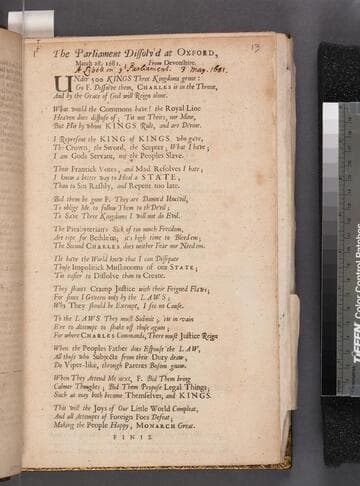 13
The Parliament Dissolv'd at OXFORD,
March 28. 1681. From Devonshire.
A Libell on ye Parliament. 3 May. 1681.
UNder 500 KINGS Three Kingdoms groan:
Go F. Dissolve them, CHARLES is on the Throne,
And by the Grace of God will Reign alone.
What would the Commons have? the Royal Line
Heaven does dispose of; 'Tis not Theirs, nor Mine,
But His by whom KINGS Rule, and are Divine.
I Represent the KING of KINGS who gave,
The Crown, the Sword, the Scepter, What I have;
I am Gods Servant, not the Peoples Slave.
Their Frantick Votes, and Mad Resolves I hate;
I know a better way to Heal a STATE,
Than to Sin Rashly, and Repent too late.
Bid them be gone F. They are Damn'd Uncivil,
To oblige Me to follow Them to th'Devil;
To Save Three Kingdoms I will not do Evil.
The Presbyterians Sick of too much Freedom,
Are ripe for Bethle'm, it's high time to Bleed em;
The Second CHARLES does neither Fear nor Need em.
I'le have the World know that I can Dissipate
Those Impolitick Mushrooms of our STATE;
'Tis easier to Dissolve than to Create.
They shan't Cramp Justice with their Feigned Flaws;
For since I Govern only by the LAWS;
Why They should be Exempt, I see no Cause.
To the LAWS They must Submit; 'tis in vain
E're to Attempt to shake off those again;
For where CHARLES Commands, There must Justice Reign
When the Peoples Father does Espouse the LAW,
All those who Subjects from their Duty draw,
Do Viper-like, through Parents Bosom gnaw.
When They Attend Me next, F. Bid Them bring
Calmer Thoughts; Bid Them Propose Legal Things;
Such as may both become Themselves, and KINGS.
This will the Joys of Our Little World Compleat,
And all Attempts of Foreign Foes Defeat;
Making the People Happy, MONARCH Great.
FINIS.